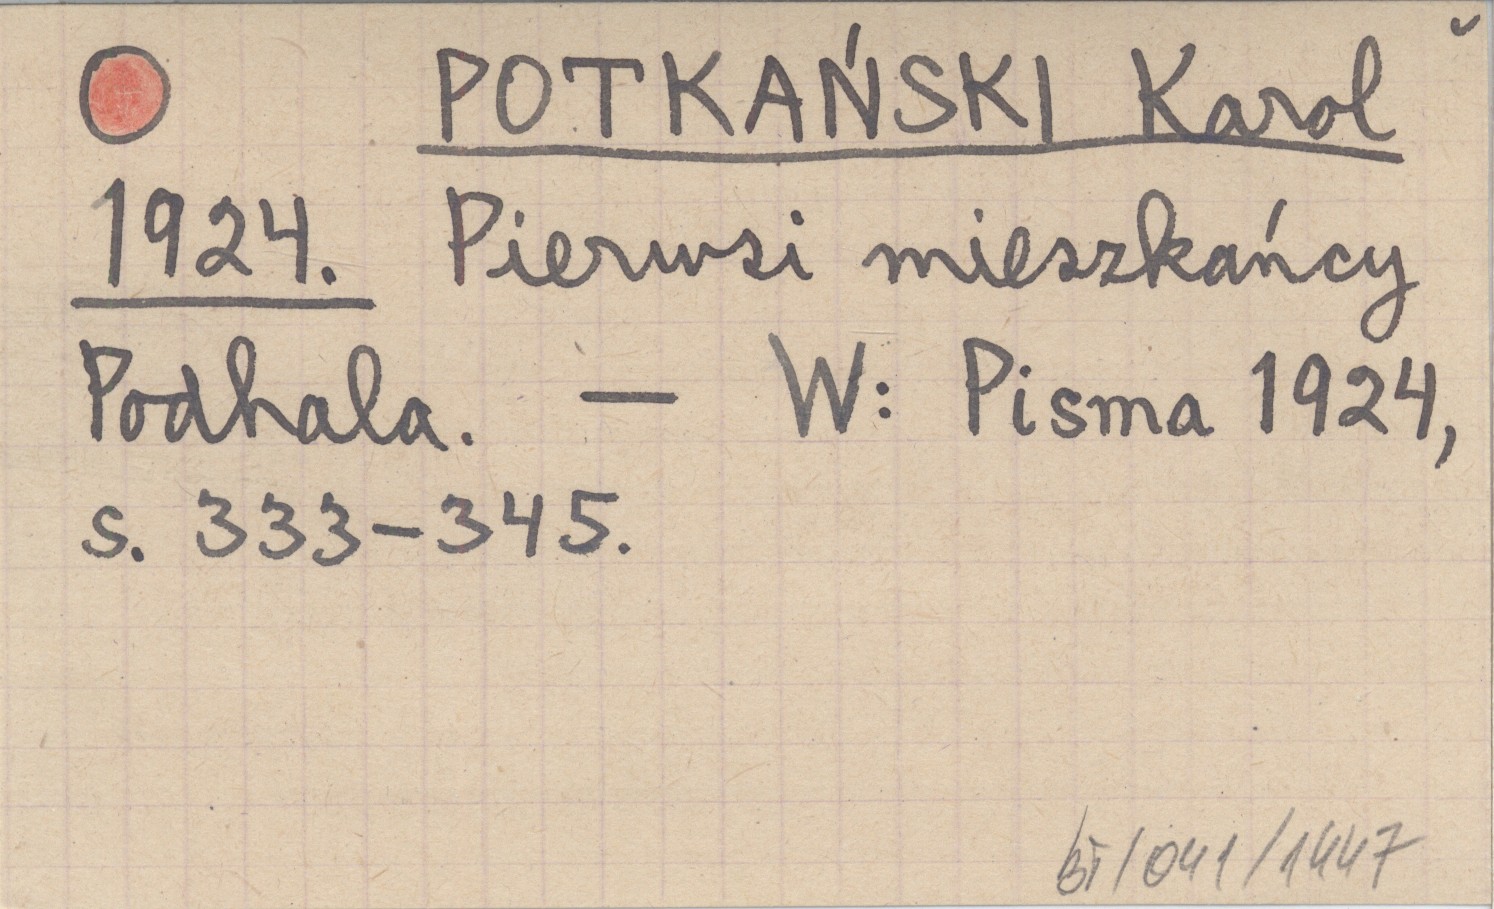 POTKAŃSKI Karol
1924. Pierwsi mieszkańcy
Podhala. — W: Pisma 1924,
s. 333-345.
/041/1447